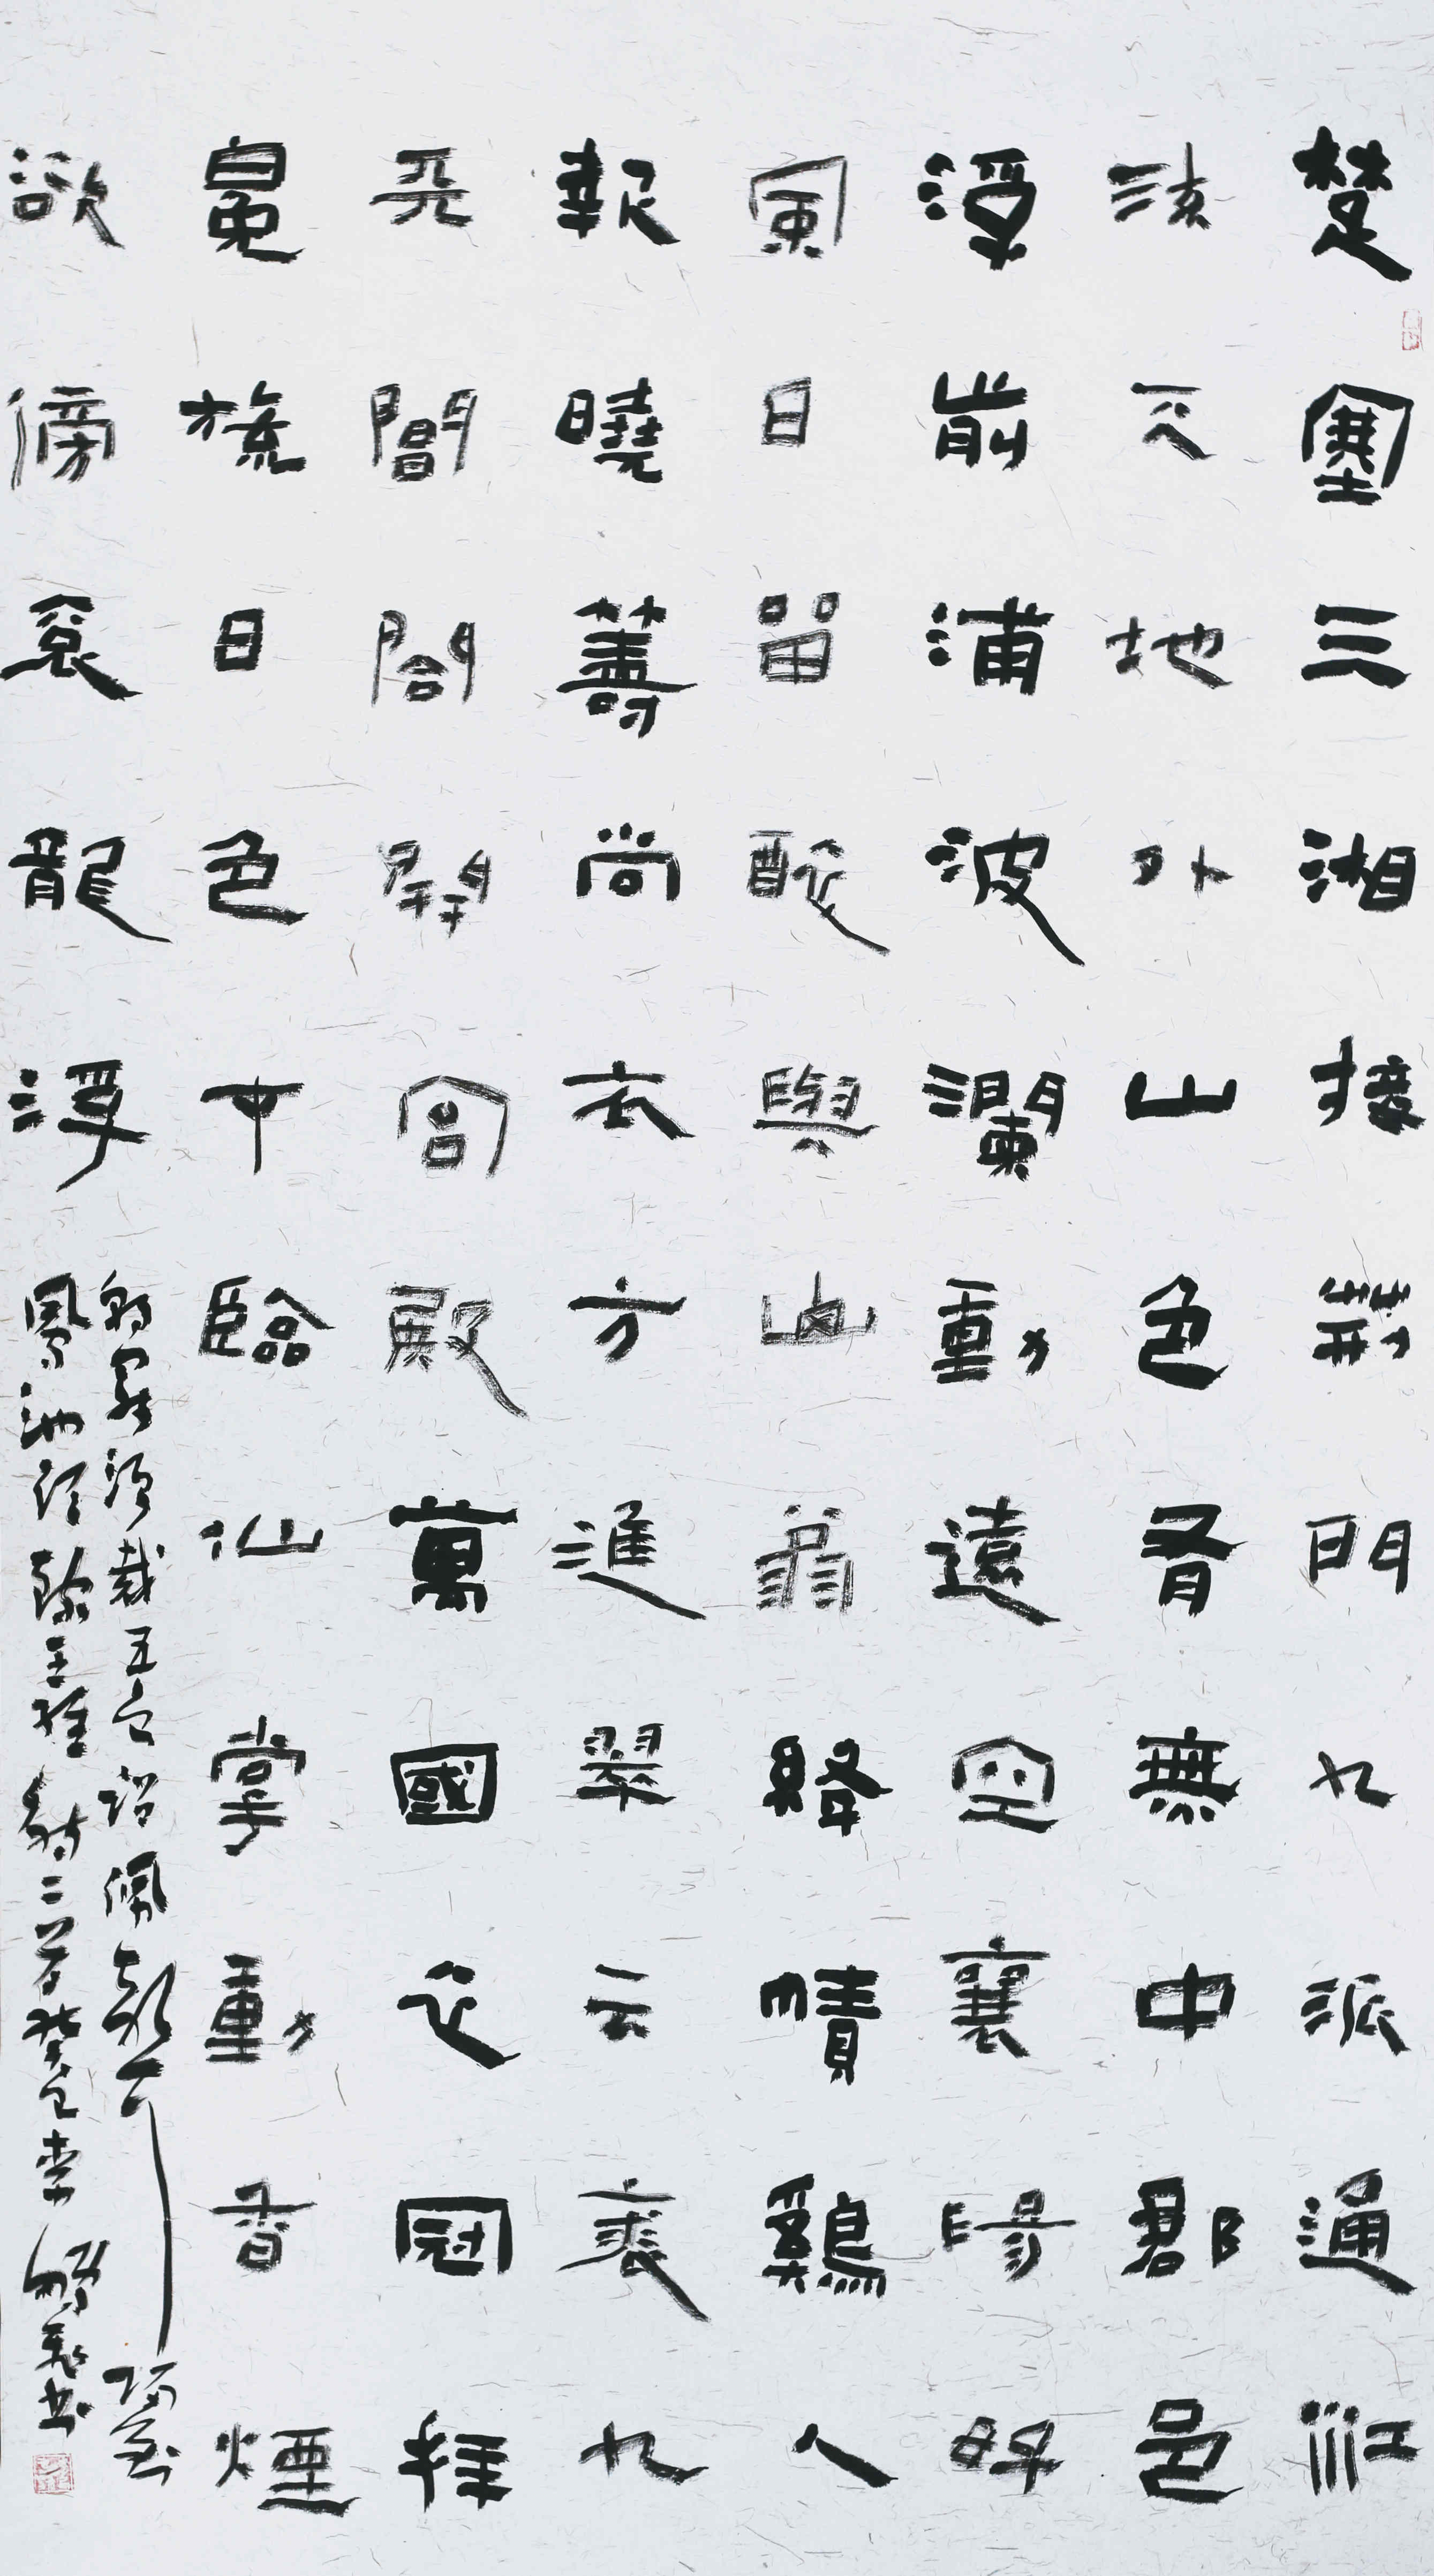 楚塞三湘接荊門九派通江
流天地外山色有無中郡邑
浮前浦波瀾動遠空襄陽好
風日留醉與山翁絳幘雞人
報曉籌尚衣方進翠云裘九
天閶闔開宮殿萬國衣冠拜
冕旒日色才臨仙掌動香煙
欲傍袞龍浮
朝罷須裁五色詔佩聲
鳳池頭錄王維詩二首於癸卯 書